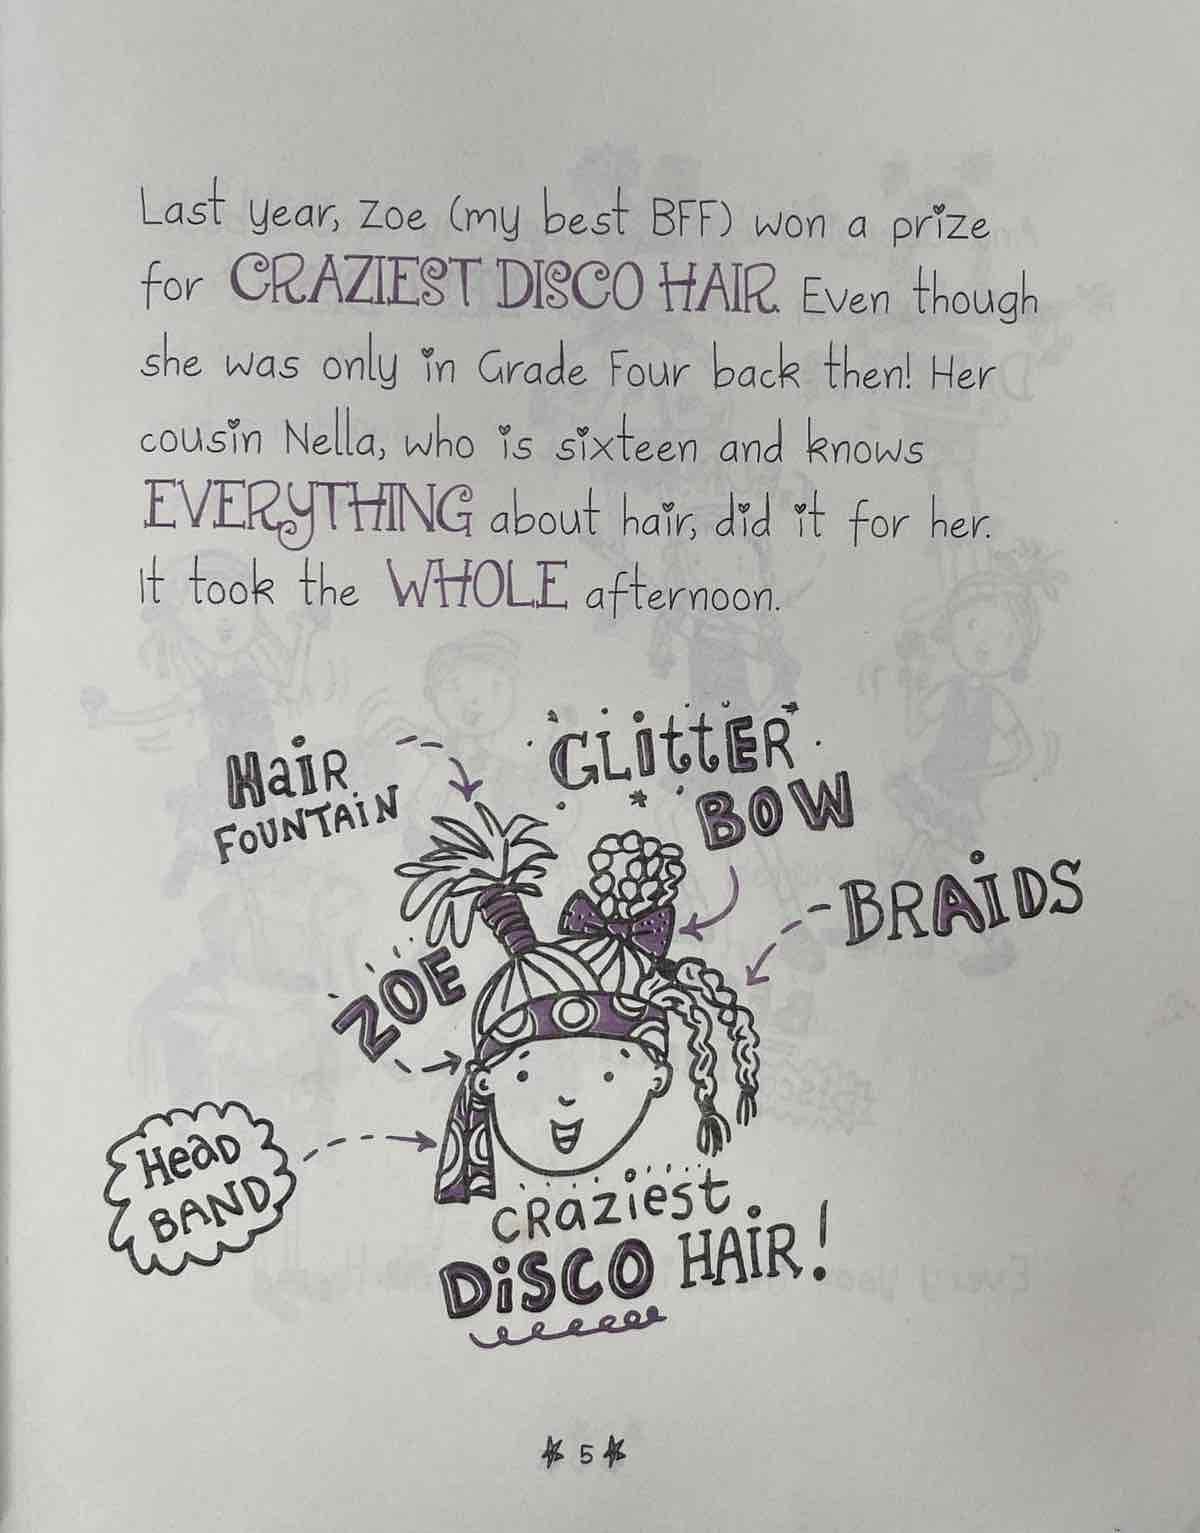 Last year, Zoe (my best BFF) won a prize
for CRAZIEST DISCO HAIR. Even though
she was only in Grade Four back then! Her
cousin Nella, who is sixteen and knows
EVERYTHING about hair, did it for her.
It took the WHOLE afternoon.
HaiR
FOUNTAiN
GLittER
BOW
BRAiDS
ZOE
Head
BAND
CRaziest
DiSCO HAiR!
5